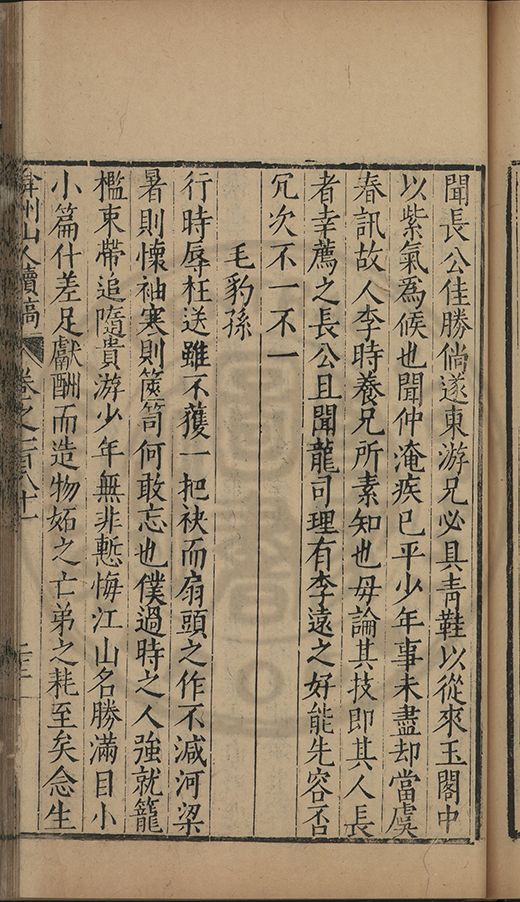 聞長公佳勝倘遂東游兄必具青鞋以從來玉閣中
以紫氣為候也聞仲淹疾已平少年事未盡却當虞
春訊故人李時養兄所素知也毋論其技即其人長
者幸薦之長公且聞龍司理有李遠之好能先容否
冗次不一不一
毛豹孫
行時辱枉送雖不獲一把袂而扇頭之作不減河梁
暑則懷袖寒則篋笥何敢忘也僕過時之人強就籠
檻束帶追隨貴游少年無非慙悔江山名勝滿目小
小篇什差足獻酬而造物妬之亡弟之耗至矣念生
弇州山人續稿 卷之一百八十一